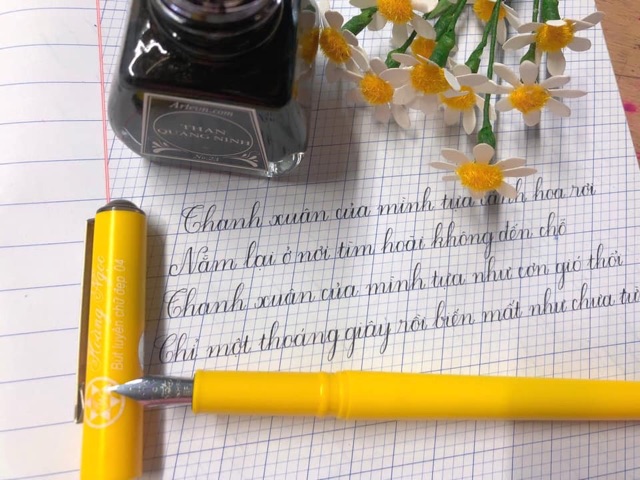 Artevn.com
THAN
QUẢNG NINH
No.23
Thanh xuân của mình tựa cánh hoa rơi
Nằm lại ở nơi tìm hoài không đến chỗ
Thanh xuân của mình tựa như cơn gió thổi
Chỉ một thoáng giây rồi biến mất như chưa từ
Hoàng Ngôi
Bút luyện chữ đẹp 04